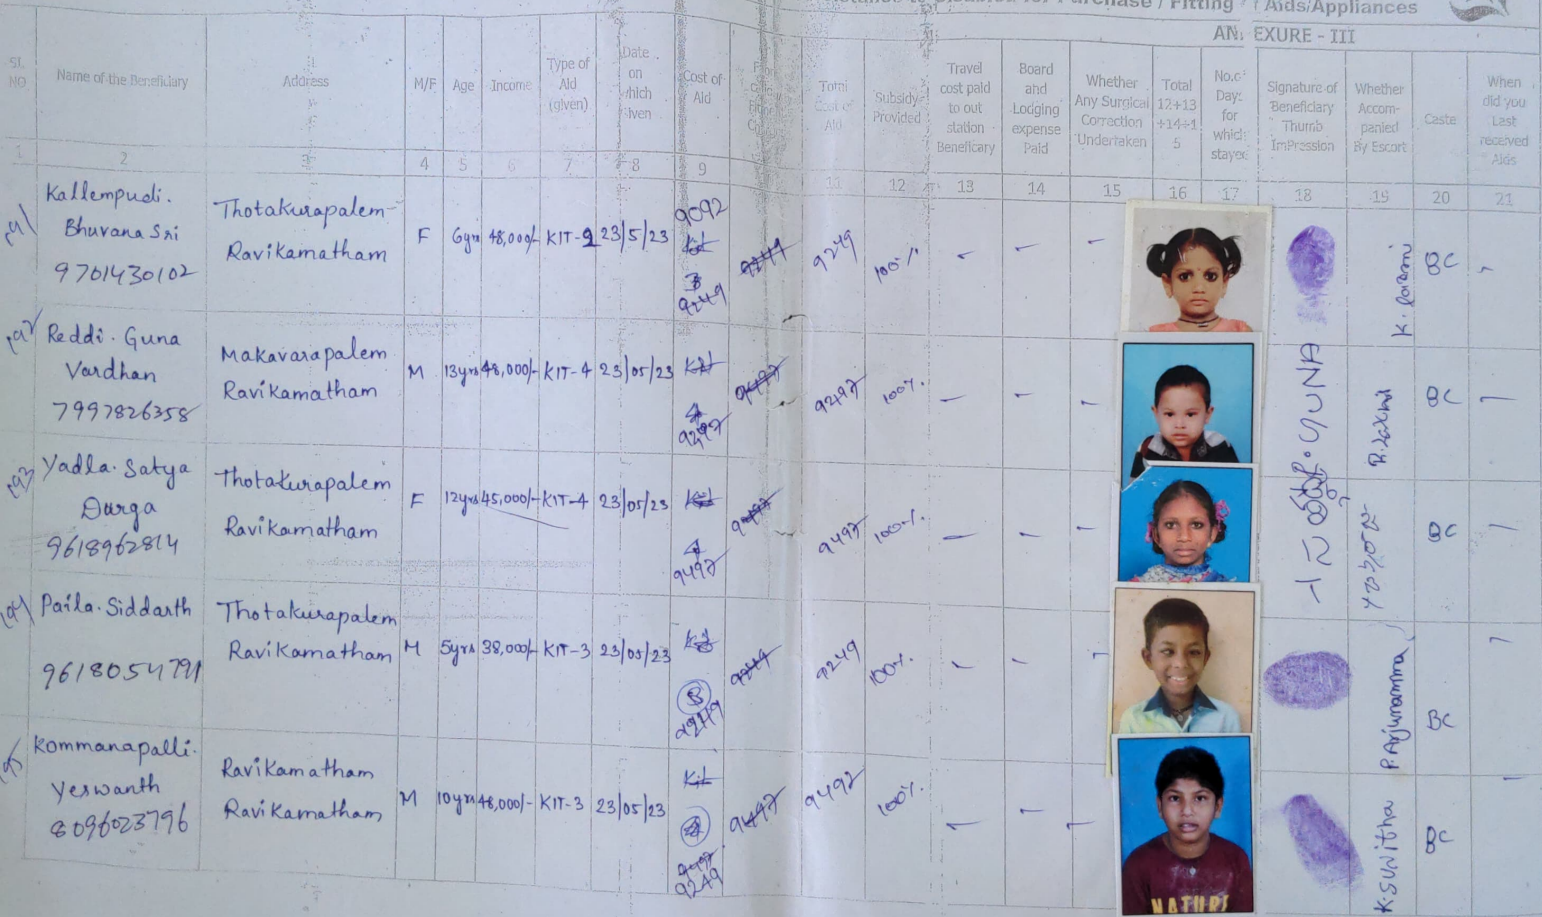 Disabled for Purchase / Fitting / Aids/Appliances
ANNEXURE - III
Sl. NO
Name of the Beneficiary
Address
M/F
Age
Income
Type of Aid (given)
Date on which given
Cost of Aid
Total Cost of Aid
Subsidy Provided
Travel cost paid to out station Beneficary
Board and Lodging expense Paid
Whether Any Surgical Correction Undertaken
Total 12+13 +14+1 5
No.of Days for which stayed
Signature of Beneficiary Thumb ImPression
Whether Accom- panied By Escort
Caste
When did you Last received Aids
1 2 3 4 5 6 7 8 9 11 12 13 14 15 16 17 18 19 20 21
Kallempudi. Bhuvana Sri 9701430102
Thotakurapalem- Ravikamatham
F 6yrs 48,000/- KIT-2 23/5/23 9092 Kit 3 9249 9249 9249 100% BC
Reddi. Guna Vardhan 7997826358
Makavarapalem Ravikamatham
M 13yrs 48,000/- KIT-4 23/05/23 Kit 4 9297 9497 9297 100% R.GUNA BC
Yadla. Satya Durga 9618962814
Thotakurapalem Ravikamatham
F 12yrs 45,000/- KIT-4 23/05/23 Kit 4 9497 9497 9497 100% BC
Paila. Siddarth
Thotakurapalem Ravikamatham
M 5yrs 38,000/- KIT-3 23/05/23 Kit 3 9249 9249 9249 100% P.Arjunamma BC
Kommanapalli. Yeswanth 8096023796
Ravikamatham Ravikamatham
M 10yrs 48,000/- KIT-3 23/05/23 Kit 9497 9249 9497 9492 100% K SUNitha BC
NATURE